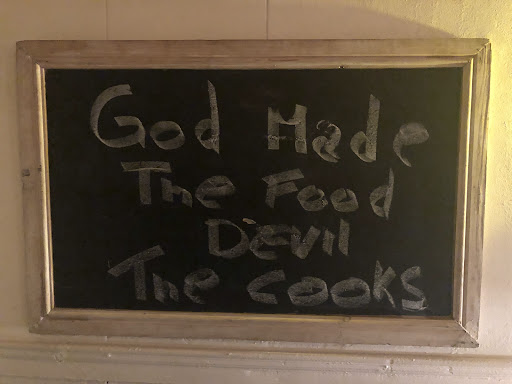 God Made
The Food
DEVIL
The cooks